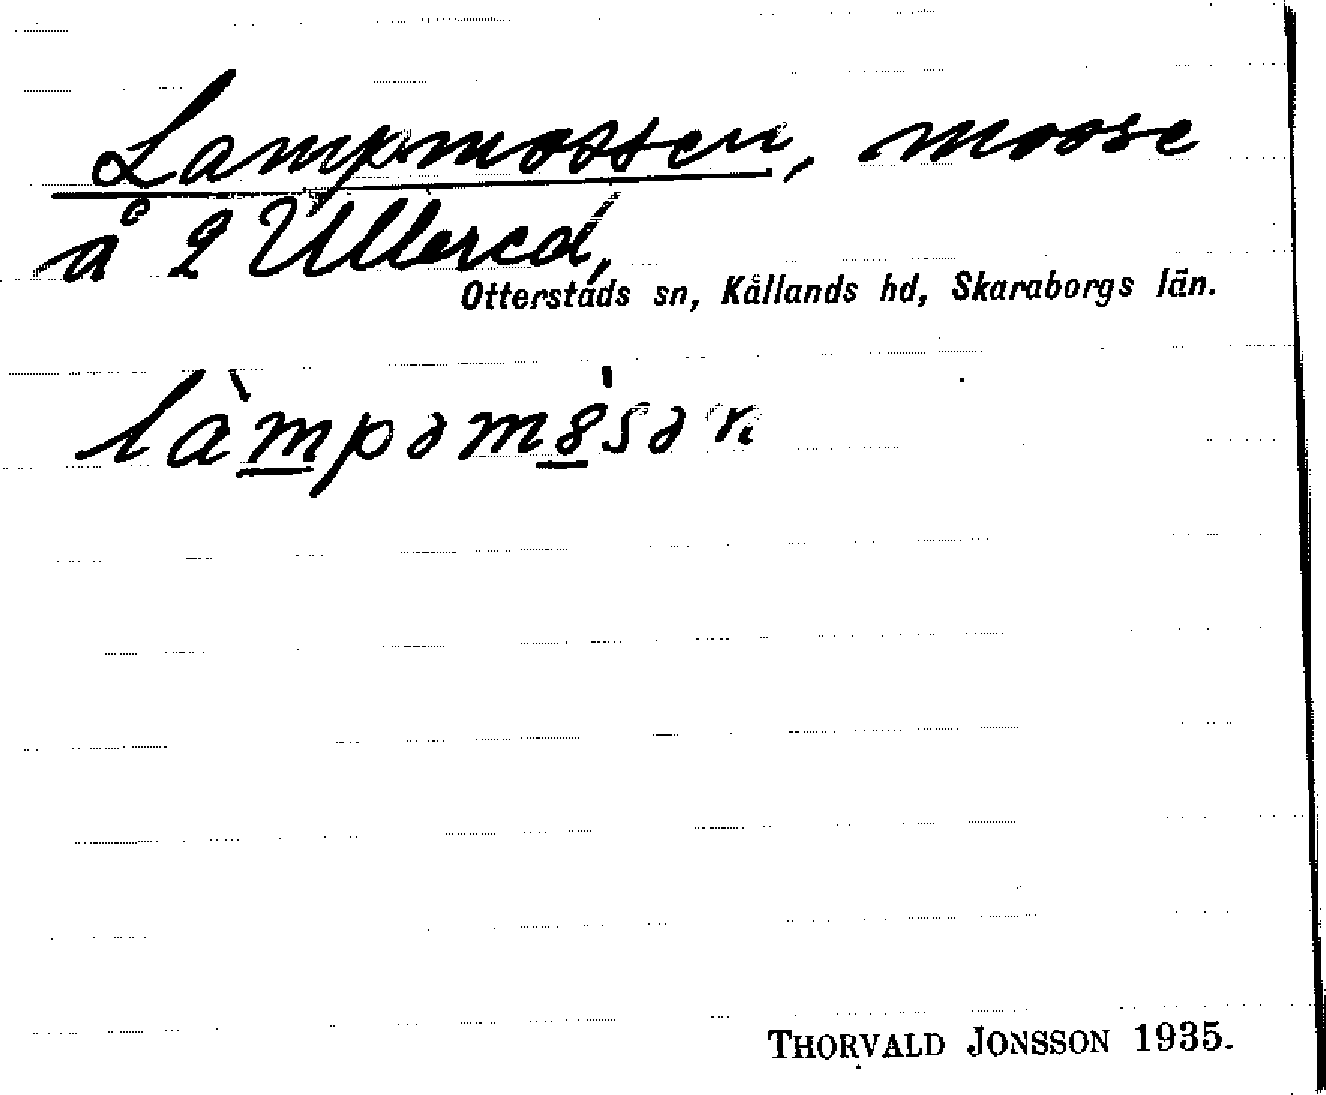 Lampmossen, mosse
å 2 Ullered,
Otterstads sn, Kållands hd, Skaraborgs län.
THORVALD JONSSON 1935.